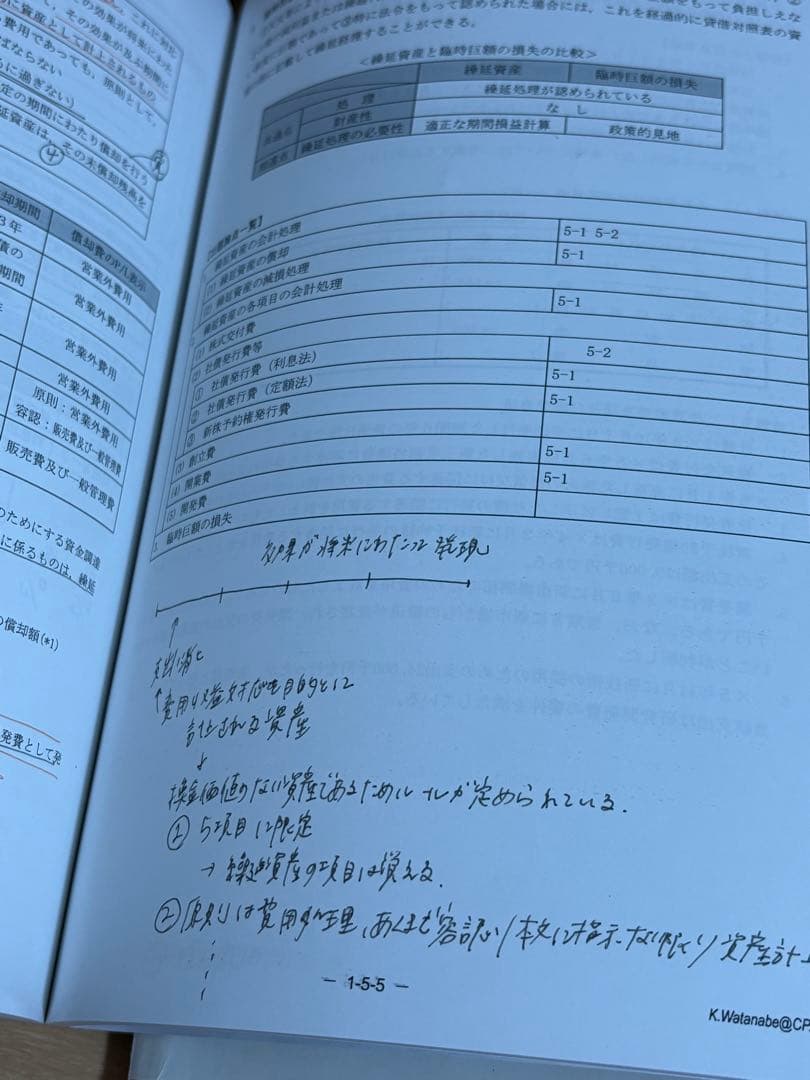 その効果が及ぶ期間に
に資産として計上されるもの
費用であっても、原則として、
ばならない
に過ぎない)
定の期間にわたり償却を行う
延資産は、その未償却残高を
④
却期間 償却費のP/L表示
3年 営業外費用
債の
期間 営業外費用
営業外費用
営業外費用
原則：営業外費用
容認：販売費及び一般管理費
販売費及び一般管理費
のためにする資金調達
に係るものは、繰延
の償却額(*1)
発費として発
をもって負担しえな
法令をもって認められた場合には、これを経過的に貸借対照表の資
記載して繰延経理することができる。
<繰延資産と臨時巨額の損失の比較>
繰延資産 臨時巨額の損失
処理 繰延処理が認められている
共通点 財産性 なし
相違点 繰延処理の必要性 適正な期間損益計算 政策的見地
繰延資産の会計処理
(1) 繰延資産の償却 5-1 5-2
(2) 繰延資産の減損処理 5-1
繰延資産の各項目の会計処理
(1) 株式交付費 5-1
(2) 社債発行費等
① 社債発行費（利息法） 5-2
② 社債発行費（定額法） 5-1
③ 新株予約権発行費 5-1
(3) 創立費
(4) 開業費 5-1
(5) 開発費 5-1
臨時巨額の損失
効果が将来にわたって発現
↑
支出済と
↑費用収益対応を目的に
計上される資産
↓
換金価値のない資産であるためルールが定められている.
① 5項目に限定
→ 繰延資産の項目は覚える.
② 原則は費用処理,あくまで容認 本文に指示ない限り資産計上
- 1-5-5 -
K.Watanabe@CP